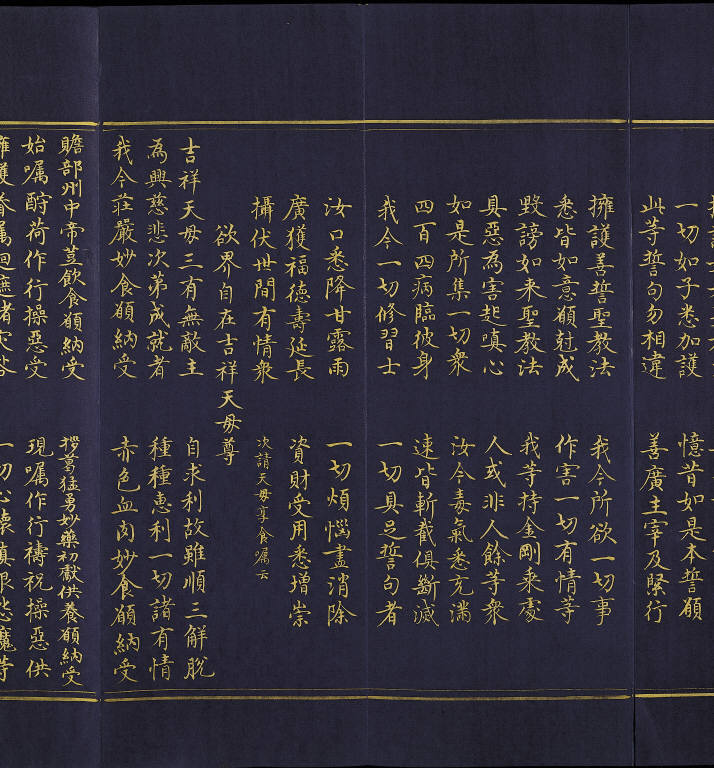 一切如子悉加護 憶昔如是本誓願
此等誓句勿相違 善廣主宰及緊行
擁護善誓聖教法 我今所欲一切事
悉皆如意願尅成 作害一切有情等
毀謗如来聖教法 我等持金剛乗處
具惡為害起嗔心 人或非人餘等衆
如是所集一切衆 汝今毒氣悉充滿
四百四病臨彼身 速皆斬截俱斷滅
我今一切修習士 一切具足誓句者
汝口悉降甘露雨 一切煩惱盡消除
廣獲福德壽延長 資財受用悉增崇
攝伏世間有情衆 次請天母享食嘱云
欲界自在吉祥天母尊
吉祥天母三有無敵主 自求利故雖順三解脫
為興慈悲次第成就者 種種惠利一切諸有情
我今莊嚴妙食願納受 赤色血肉妙食願納受
贍部州中帝荳飲食願納受 拶葛猛勇妙藥初獻供養願納受
始嘱酧荷作行操惡受 現嘱作行禱祝操惡供